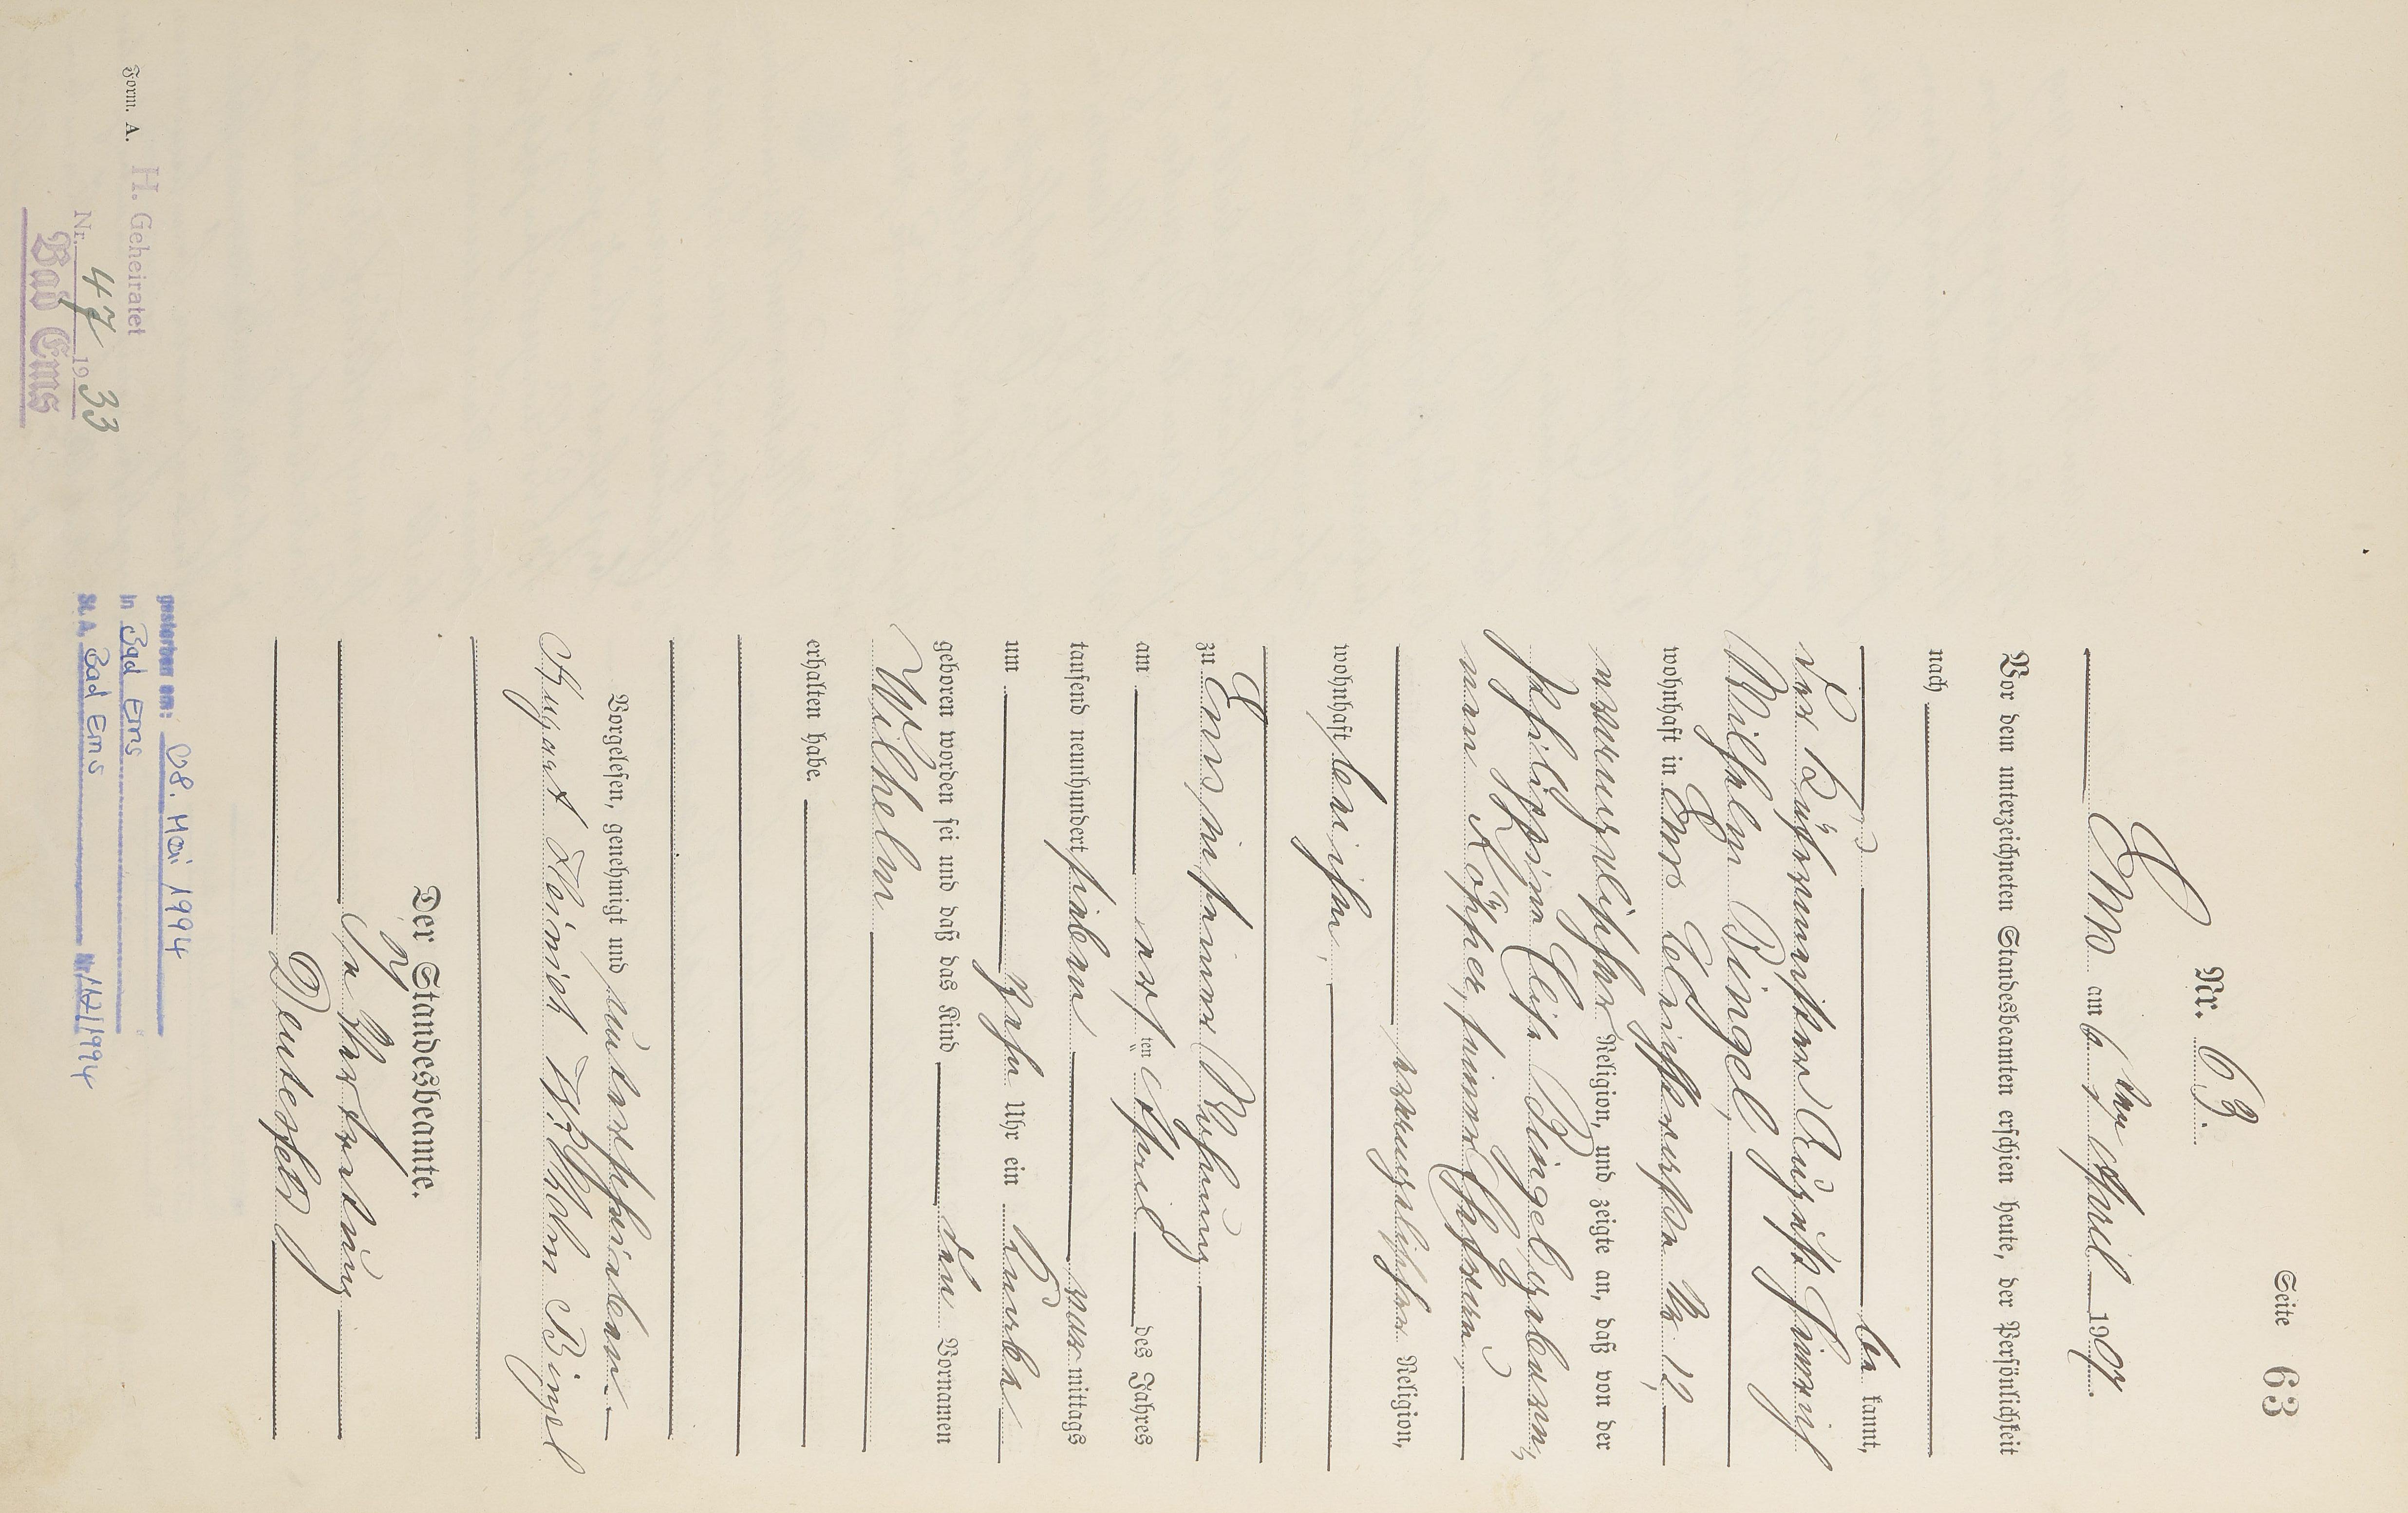 Seite 63
Nr. 63.
Ems am 6ten April 1907.
Vor dem unterzeichneten Standesbeamten erschien heute, der Persönlichkeit
nach
be kannt,
der Fuhrmann August Heinrich
Wilhelm Bingel,
wohnhaft in Ems
evangelischer Religion, und zeigte an, daß von der
Philippine Elise Bingel geboren,
nen Köhler, seiner Ehefrau,
evangelischer Religion,
wohnhaft bei ihm,
zu Ems, in seiner Wohnung
am ersten April des Jahres
tausend neunhundert sieben vor mittags
um zehn Uhr ein Knabe
geboren worden sei und daß das Kind den Vornamen
Wilhelm
erhalten habe.
Vorgelesen, genehmigt und unterschrieben.
August Heinrich Wilhelm Bingel
Der Standesbeamte.
In Vertretung
Form. A.
H. Geheiratet
Nr. 47 1933
Bad Ems
gestorben am: 08. Mai 1994
in Bad Ems
St. A. Bad Ems Nr. 121/1994